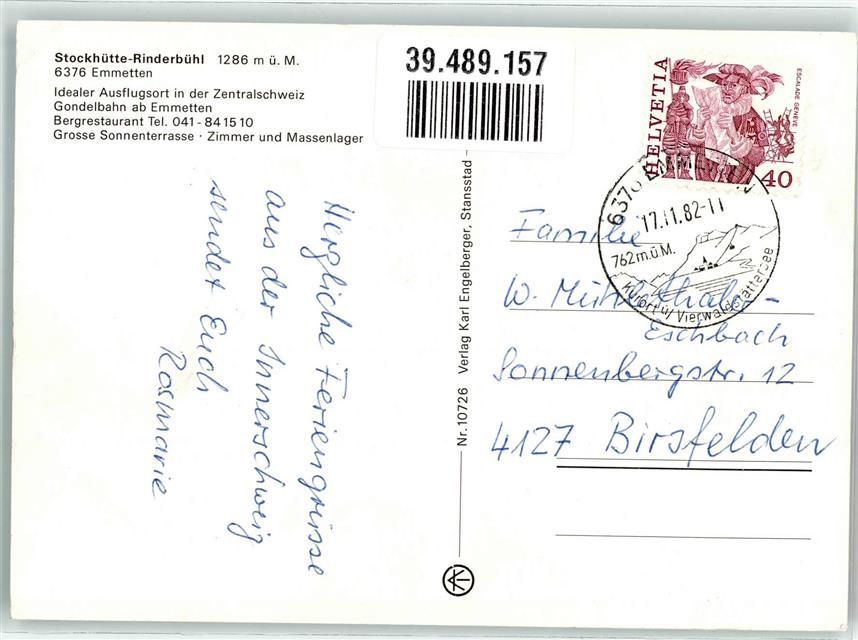 Stockhütte-Rinderbühl 1286 m ü. M.
6376 Emmetten
Idealer Ausflugsort in der Zentralschweiz
Gondelbahn ab Emmetten
Bergrestaurant Tel. 041 - 84 15 10
Grosse Sonnenterrasse · Zimmer und Massenlager
39.489.157
HELVETIA
ESCALADE GENÈVE
40
6376 EMMETTEN
17.11.82-11
762 m.ü.M.
Kurort ü/ Vierwaldstättersee
Herzliche Feriengrüsse
aus der Innerschweiz
sendet Euch
Rosmarie
Nr. 10726 Verlag Karl Engelberger, Stansstad
Familie
W. Mühlethaler-
Eschbach
Sonnenbergstr. 12
4127 Birsfelden